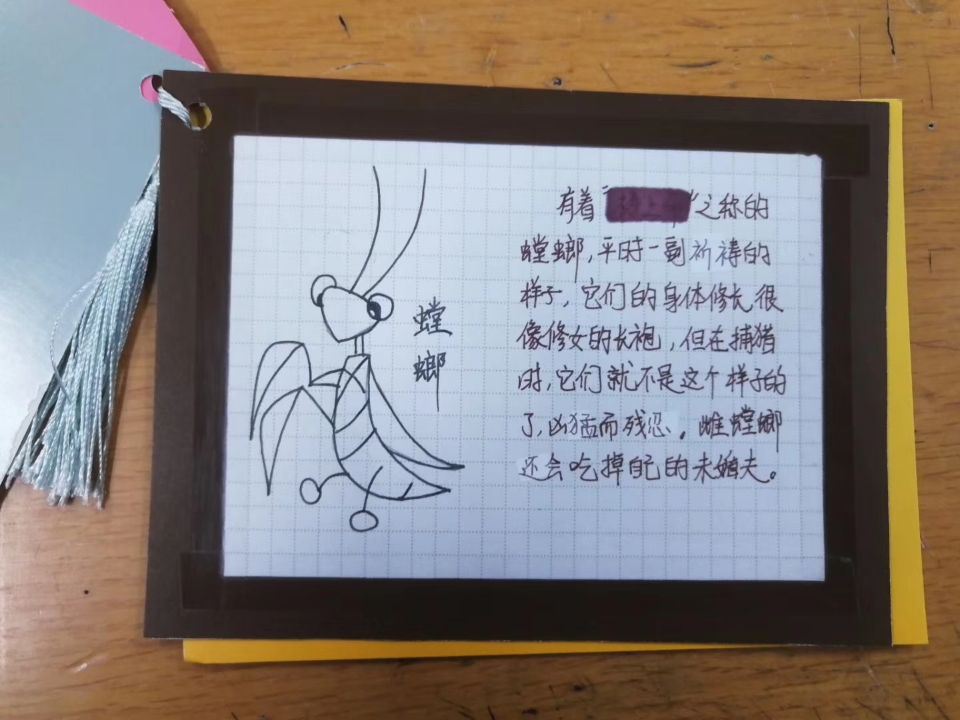 螳
螂
有着“ ”之称的
螳螂,平时一副祈祷的
样子,它们的身体修长很
像修女的长袍,但在捕猎
时,它们就不是这个样子的
了,凶猛而残忍。雌螳螂
还会吃掉自己的未婚夫。